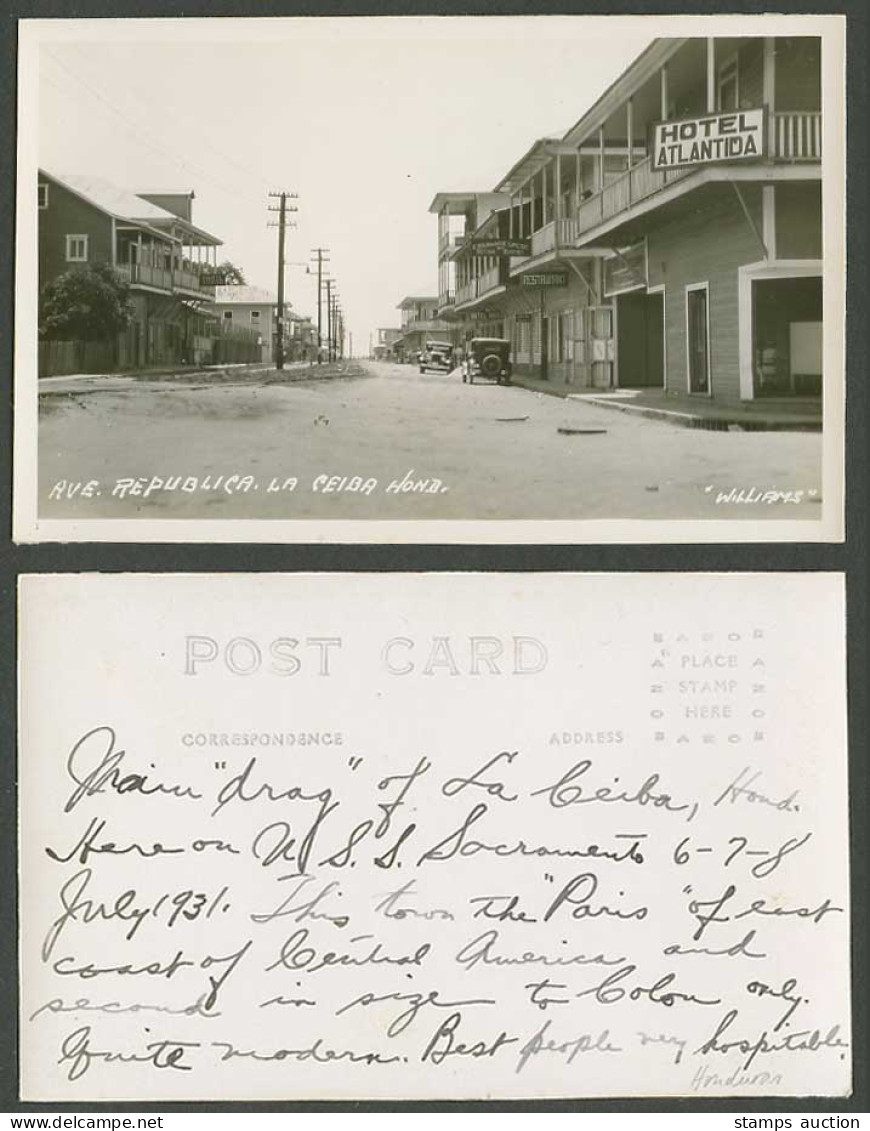 HOTEL
ATLANTIDA
RESTAURANT
AVE. REPUBLICA. LA CEIBA HOND.
"WILLIAMS"
POST CARD
AZO
PLACE
STAMP
HERE
AZO
CORRESPONDENCE
ADDRESS
Main "drag" of La Ceiba, Hond.
Here on U.S.S. Sacramento 6-7-8
July 1931. This town the "Paris" of east
coast of Central America and
second in size to Colon only.
Quite modern. Best people very hospitable.
Honduras
stamps auction